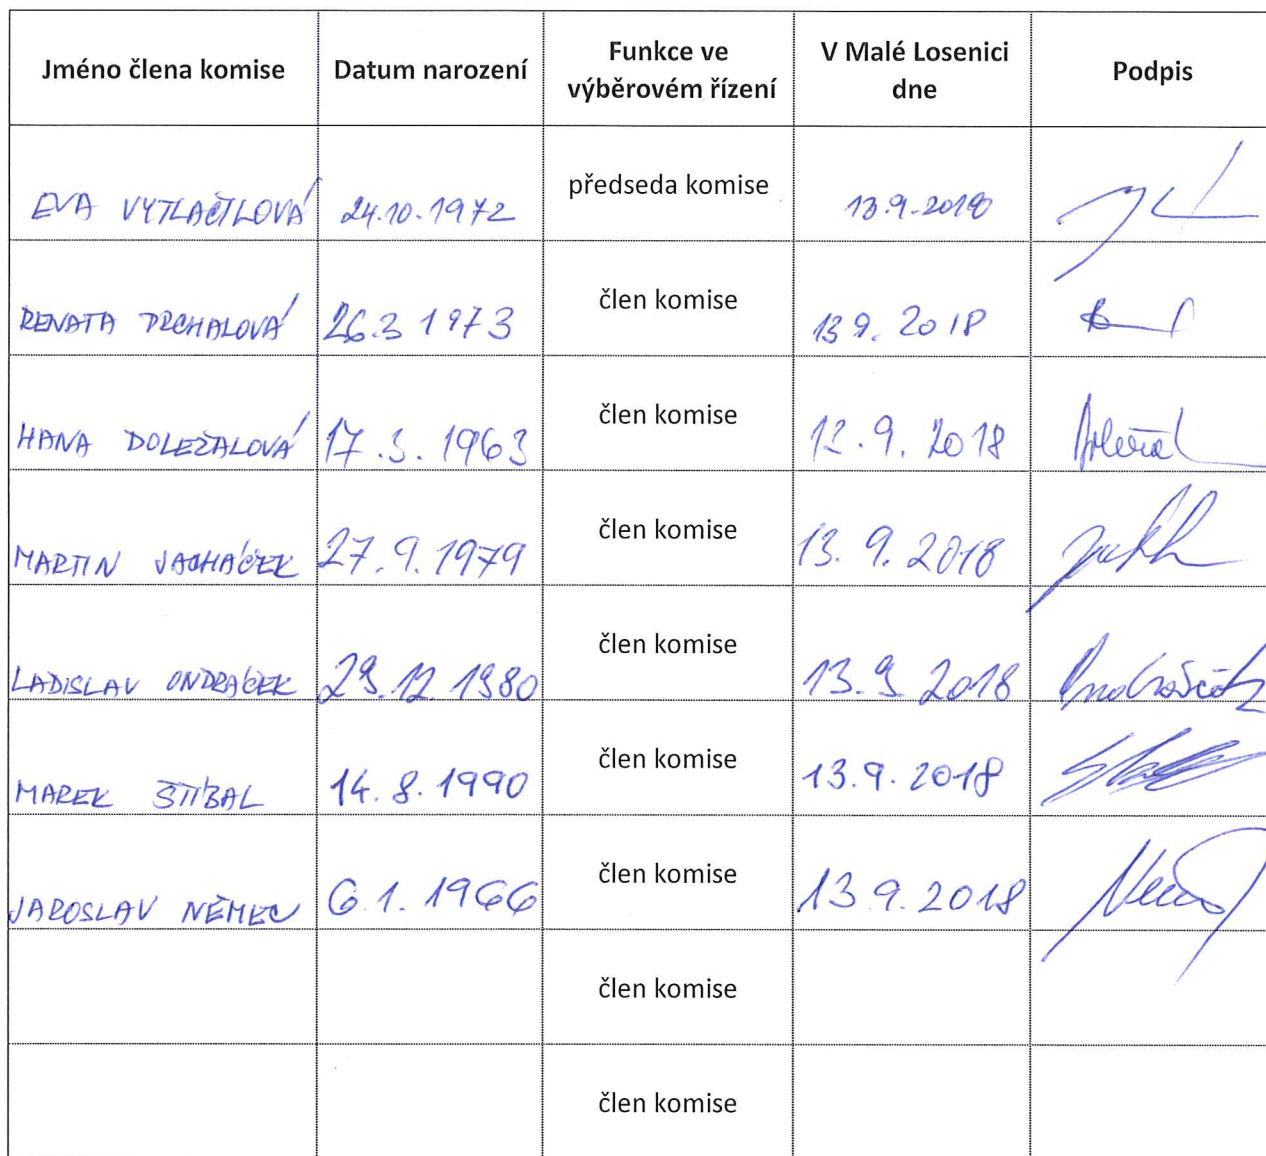 Jméno člena komise Datum narození Funkce ve výběrovém řízení V Malé Losenici dne Podpis
EVA VYTLAČILOVÁ 24.10.1972 předseda komise 13.9.2018
RENATA DRCHALOVÁ 26.3 1973 člen komise 13 9. 2018
HANA DOLEŽALOVÁ 17.3. 1963 člen komise 9. 2018
MARTIN JACHÁČEK 27.9.1979 člen komise 13. 9. 2018
LADISLAV ONDRÁČEK 29.12.1980 člen komise 13.9 2018
MAREK ŠTÍBAL 14.8.1990 člen komise 13.9.2018
JAROSLAV NĚMEC 6.1.1966 člen komise 13.9.2018
člen komise
člen komise